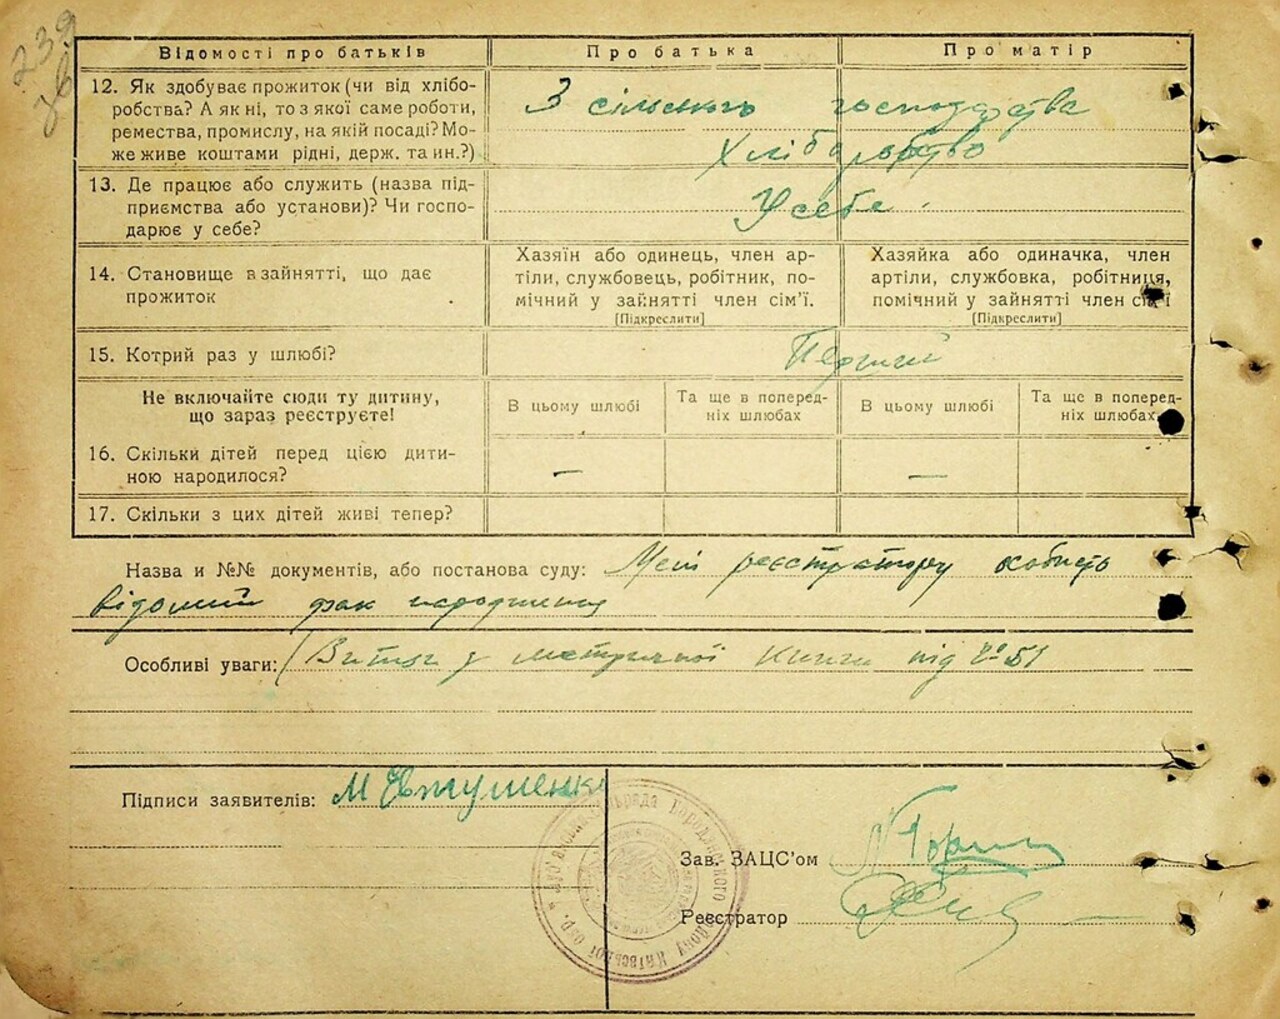 239
зв
Відомості про батьків
Про батька
Про матір
12. Як здобуває прожиток (чи від хлібо-
робства? А як ні, то з якої саме роботи,
ремества, промислу, на якій посаді? Мо-
же живе коштами рідні, держ. та ин.?)
З сільського господарства
Хліборобство
13. Де працює або служить (назва під-
приємства або установи)? Чи госпо-
дарює у себе?
У себе.
14. Становище в зайнятті, що дає
прожиток
Хазяїн або одинець, член ар-
тіли, службовець, робітник, по-
мічний у зайнятті член сім'ї.
[Підкреслити]
Хазяйка або одиначка, член
артіли, службовка, робітниця,
помічний у зайнятті член сім'ї
[Підкреслити]
15. Котрий раз у шлюбі?
Не включайте сюди ту дитину,
що зараз реєструєте!
В цьому шлюбі
Та ще в поперед-
ніх шлюбах
В цьому шлюбі
Та ще в поперед-
ніх шлюбах
16. Скільки дітей перед цією дити-
ною народилося?
—
—
17. Скільки з цих дітей живі тепер?
Назва и №№ документів, або постанова суду: Мені реєстратору
відомий фак народження
Особливі уваги: Витяг у метричної книги під № 51
Підписи заявителів: М Євтушенко
Бородянського району Київської Окр.
Зав. ЗАЦС'ом
Реєстратор